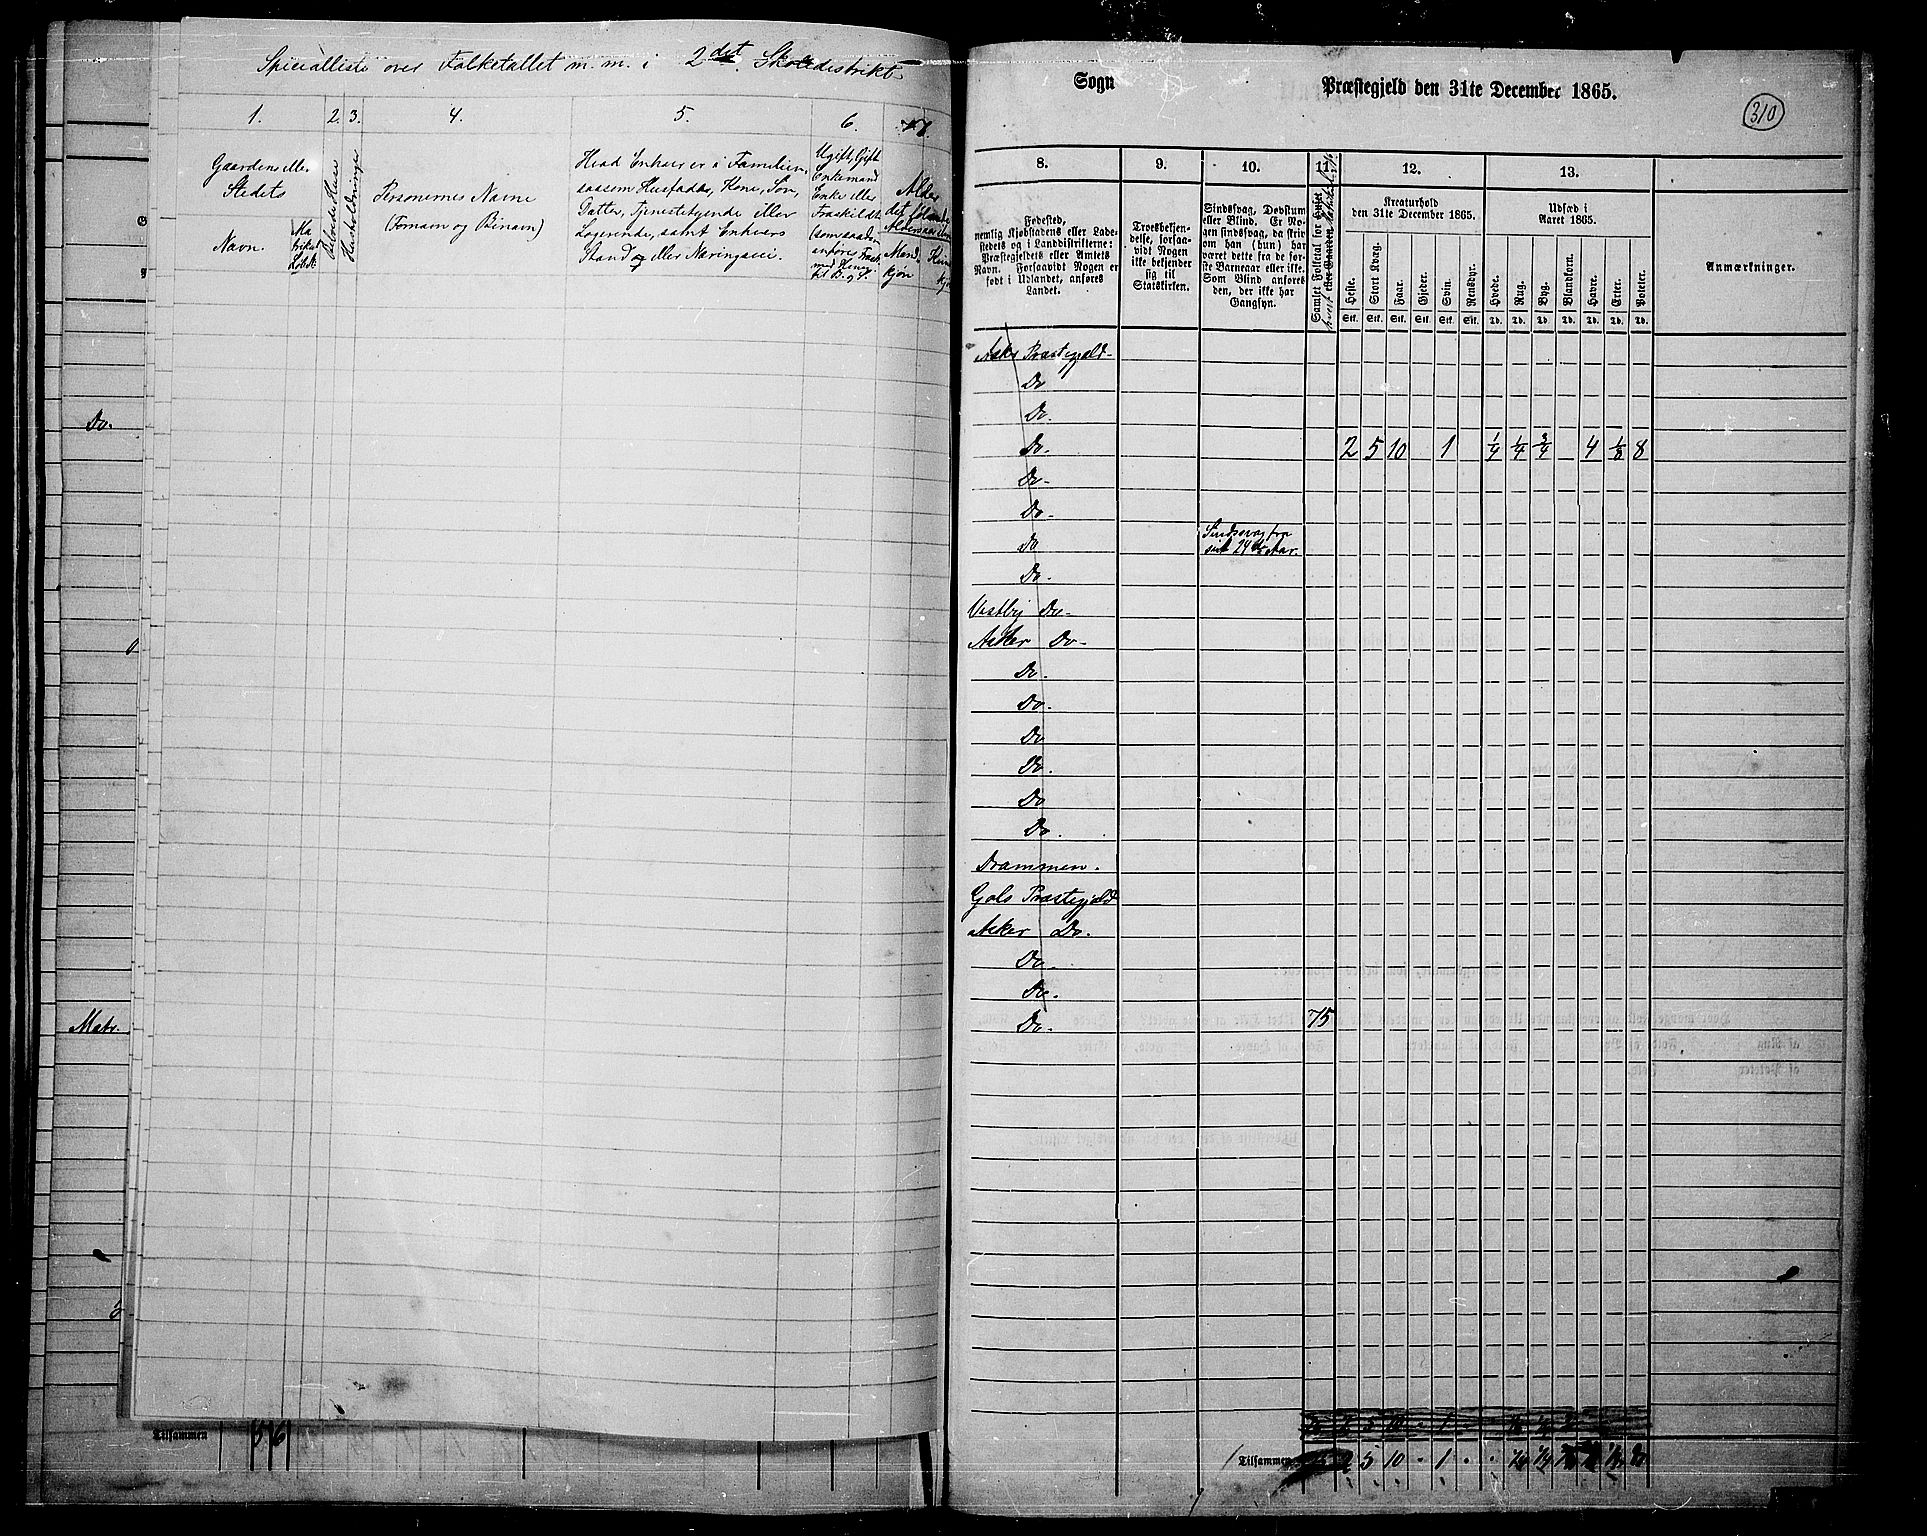 Specialliste over Folketallet m. m. i 2det Skoledistrikt
1. 2. 3. 4. 5. 6. 7.
Gaardens eller Stedets
Navn.
Matrikul Lobde
Beboede Huse
Husholdninger
Personernes Navne
(Fornavn og Binavn)
Hvad Enhver er i Familien,
saasom Husfader, Kone, Søn,
Datter, Tjenestetyende eller
Logerende, samt Enhvers
Stand eller Næringsvei.
Ugift, Gift
Enkemand
Enke eller
Fraskildt
Mand-
kjøn
Do.
0
Matr.
Tilsammen 56
Sogn
Præstegjeld den 31te December 1865.
310
8. 9. 10. 11. 12. 13.
Fødested,
nemlig Kjøbstadens eller Lade-
stedets og i Landdistrikterne:
Præstegjeldets eller Amtets
Navn. Forsaavidt Nogen er
født i Udlandet, anføres
Landet.
Troesbekjen-
delse, forsaa-
vidt Nogen
ikke bekjender
sig til
Statskirken.
Sindssvag, Døvstum
eller Blind. Er No-
gen sindssvag, da skriv
om han (hun) har
været dette fra de før-
ste Barneaar eller ikke.
Som Blind anføres
den, der ikke har
Gangsyn.
Samlet Folketal for
Kreaturhold
den 31te December 1865.
Heste. Stort Kvæg. Faar. Gjeder. Svin. Rensdyr.
Stk. Stk. Stk. Stk. Stk. Stk.
Udsæd i
Aaret 1865.
Hvede. Rug. Byg. Blandkorn. Havre. Erter. Poteter.
Td. Td. Td. Td. Td. Td. Td.
Anmærkninger.
Asker Præstegjeld
Do
Do.
Do. 2 5 10 1 1/4 1/4 3/4 4 1/8 8
Do.
Do.
Do Sindssvag fra
sit 24de Aar.
Do.
Vestby Do.
Asker Do.
Do.
Do.
Do
Do.
Do
Do.
Drammen.
Gols Præstegjeld
Asker Do.
Do.
Do.
Do. 75
Tilsammen 2 5 10 1